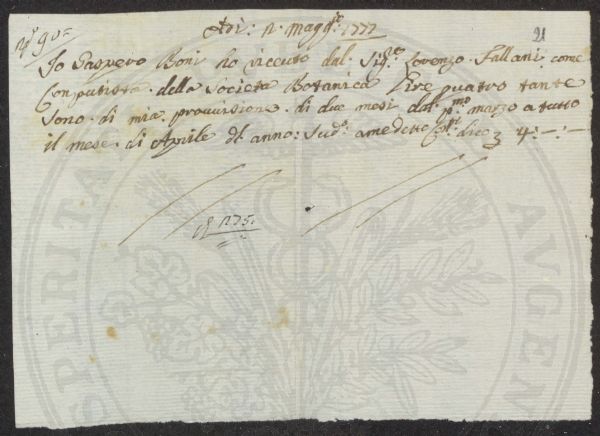 N° 90
Adì: 12. Magg.e 1777
91
Io Gaspero Boni ho riceuto dal. Sig.re Lorenzo. Fallani come
Conputista. della Società Botanica Lire quatro tante
sono. di mia. provvisione. di due mesi dal. p.mo marzo a tutto
il mese. di Aprile d. anno: Sud.o a me detto dico 4:—:—
275.
PERITA
AVGEN